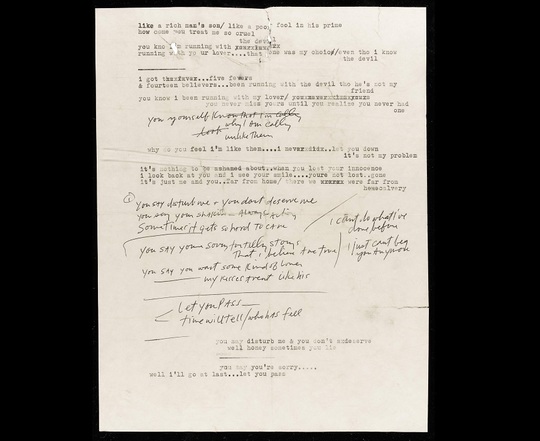 like a rich man's son/ like a poor fool in his prime
how come you treat me so cruel
the devil
you know i'm running with
running with your lover....that one was my choice/even tho i know
the devil
i got five fevers
& fourteen believers...been running with the devil tho he's not my
friend
you know i been running with my lover/
you never miss yours until you realize you never had
one
you yourself know that i'm calling
why I am calling
unlike them
why do you feel i'm like them....i never let you down
it's not my problem
it's nothing to be ashamed about..when you lost your innocence
i look back at you and i see your smile....youre not lost..gone
it's just me and you..far from home/ there we were far from
1 you say disturb me & you dont deserve me
you say your shakin
Sometimes it gets so hard to care
i can't do what i've
done before
i just cant beg
you anymore
you say your sorry for telling storys
That i believe are true
you say you want some Kind of
my Kisses arent like his
Let you PASS
time will tell / who has fell
you may disturb me & you don't undeserve
well honey sometimes you lie
you may you're sorry.....
well i'll go at last...let you pass